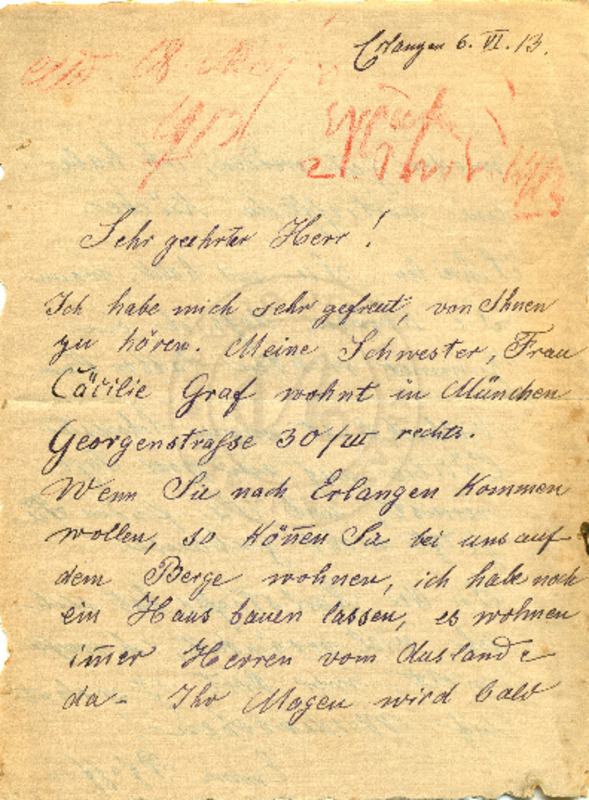 Erlangen 6. VI. 13.
1913
1913
Sehr geehrter Herr!
Ich habe mich sehr gefreut, von Ihnen
zu hören. Meine Schwester, Frau
Cäcilie Graf wohnt in München
Georgenstrasse 30/III rechts.
Wenn Sie nach Erlangen kommen
wollen, so kön̄en Sie bei uns auf
dem Berge wohnen, ich habe noch
ein Haus bauen lassen, es wohnen
im̄er Herren vom Auslande
da - Ihr Magen wird bald